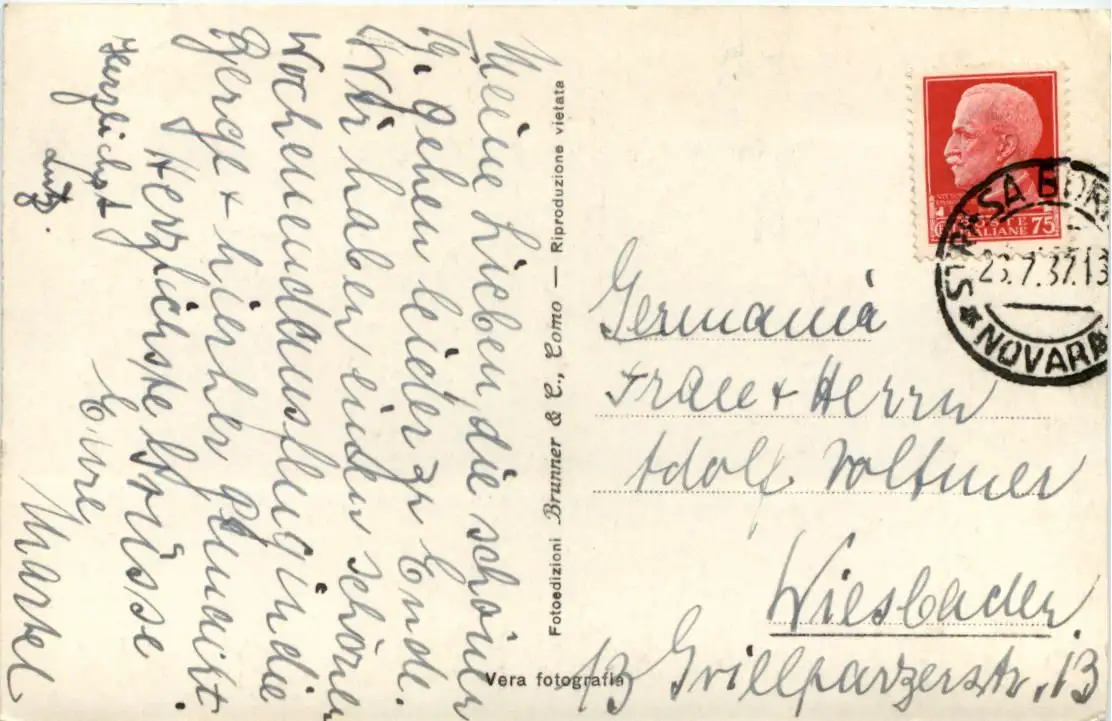 Meine Lieben die schönen
Tg. gehen leider zu Ende.
Wir haben einen schönen
Wochenendausflug in die
Berge & hierher gemacht.
Herzlichste Grüsse
Eure
Markel
Herzlichst
Lutz.
Fotoedizioni Brunner & C., Como — Riproduzione vietata
Vera fotografia
POSTE
ITALIANE 75
STRESA BOR
7.37.13
NOVARA
Germania
Frau & Herrn
Adolf Voltmer
Wiesbaden
13 Grillparzerstr. 13